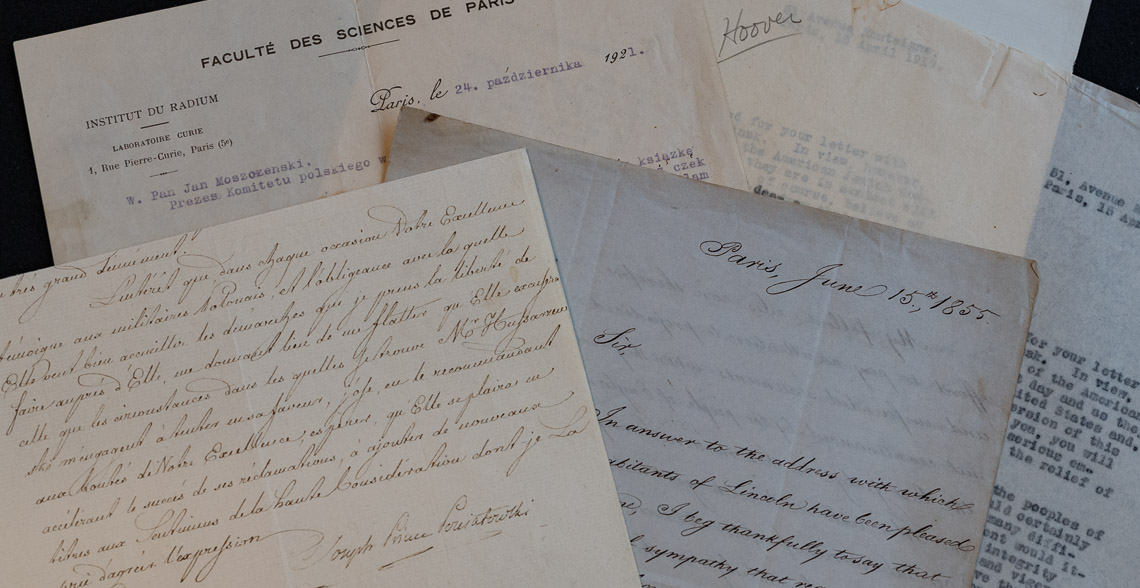 FACULTÉ DES SCIENCES DE PARIS
Paris, le 24. października 1921.
INSTITUT DU RADIUM
LABORATOIRE CURIE
1, Rue Pierre-Curie, Paris (5e)
W. Pan Jan Moszczenski.
Prezes Komitetu polskiego w
książkę
i czek
Hoover
d for your letter with
In view
the American
they are is
très grand Dénuement.
L'intérêt que dans chaque occasion Votre Excellence
témoigne aux militaires Polonais, et l'obligeance avec la quelle
Elle veut bien accueillir les démarches que je prens la liberté de
faire auprès d'Elle, me donnant lieu de me flatter qu'Elle
celle que les circonstances dans les quelles se trouve Mr
à tenter en sa faveur, j'ose, en le recommandant
aux bontés de Votre Excellence, espérer, qu'Elle se plaira en
accélérant le succès de ses réclamations, à ajouter de nouveaux
titres aux Sentimens de la haute Considération dont je La
prie d'agréer l'expression
Joseph Prince Poniatowski
Paris, June 15th, 1855.
Sir,
In answer to the address with which
abitants of Lincoln have been pleased
I beg thankfully to say that
sympathy that
51, Avenue
Paris, 15 Ap
for your letter
In view,
of the America
day and as the
ited States and,
ersion of this
you, you will
serious em-
the relief of
the peoples of
ld certainly
many diffi-
ent would it-
integrity